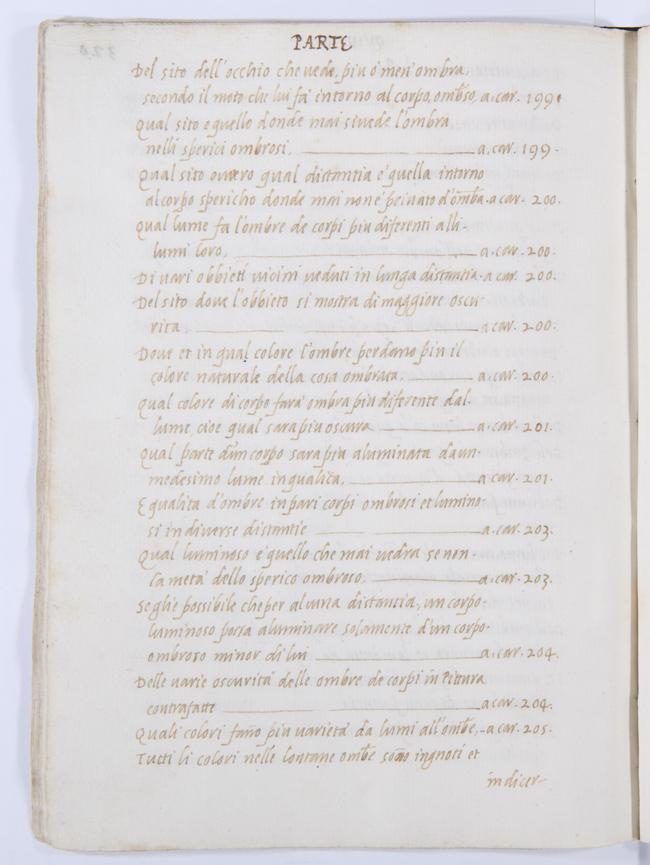 PARTE
Del sito dell'occhio che vede, piu o men' ombra
secondo il moto che lui fa' intorno al corpo, ombso, a. car. 199.
Qual sito e quello donde mai si vede l'ombra
nelli sperici ombrosi, a. car. 199.
Qual sito overo qual distantia e' quella intorno
al corpo spericho donde mai non e' privato d'omba. a car. 200.
Qual lume fa l'ombre de corpi piu diferenti alli
lumi loro, a. car. 200.
Di vari obbieti vicini veduti in lunga distantia. a car. 200.
Del sito dove l'obbieto si mostra di maggiore oscu-
rita a car. 200.
Dove et in qual colore l'ombre perdano piu il
colore naturale della cosa ombrata. a car. 200
Qual colore di corpo fara' ombra piu diferente dal
lume, cioe qual sara piu oscura a. car. 201.
Qual parte d'un corpo sara piu aluminata da un
medesimo lume in qualita, a. car. 201.
Equalita d'ombre in pari corpi ombrosi et lumino-
si in diverse distantie a. car. 203.
Qual luminoso e' quello che mai vedra se non
la meta' dello sperico ombroso, a. car. 203.
Se gli e possibile che per alcuna distantia, un corpo
luminoso possa aluminare solamente d'un corpo
ombroso minor di lui a car. 204.
Delle varie oscurita' delle ombre de corpi in Pittura
contrafatte a car. 204.
Quali colori fano piu varieta' da lumi all'ombe, a car. 205.
Tutti li colori nelle lontane ombe sono ingnoti et
indicer